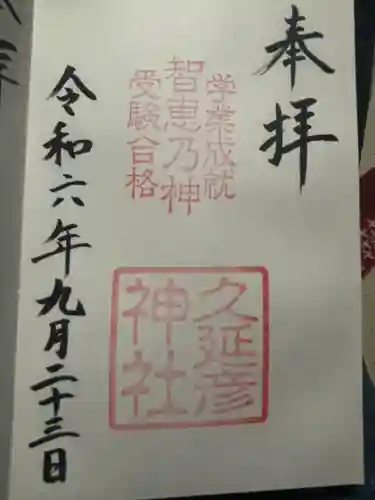 奉拝
学業成就
智恵乃神
受験合格
久延彦
神社
令和六年九月二十三日